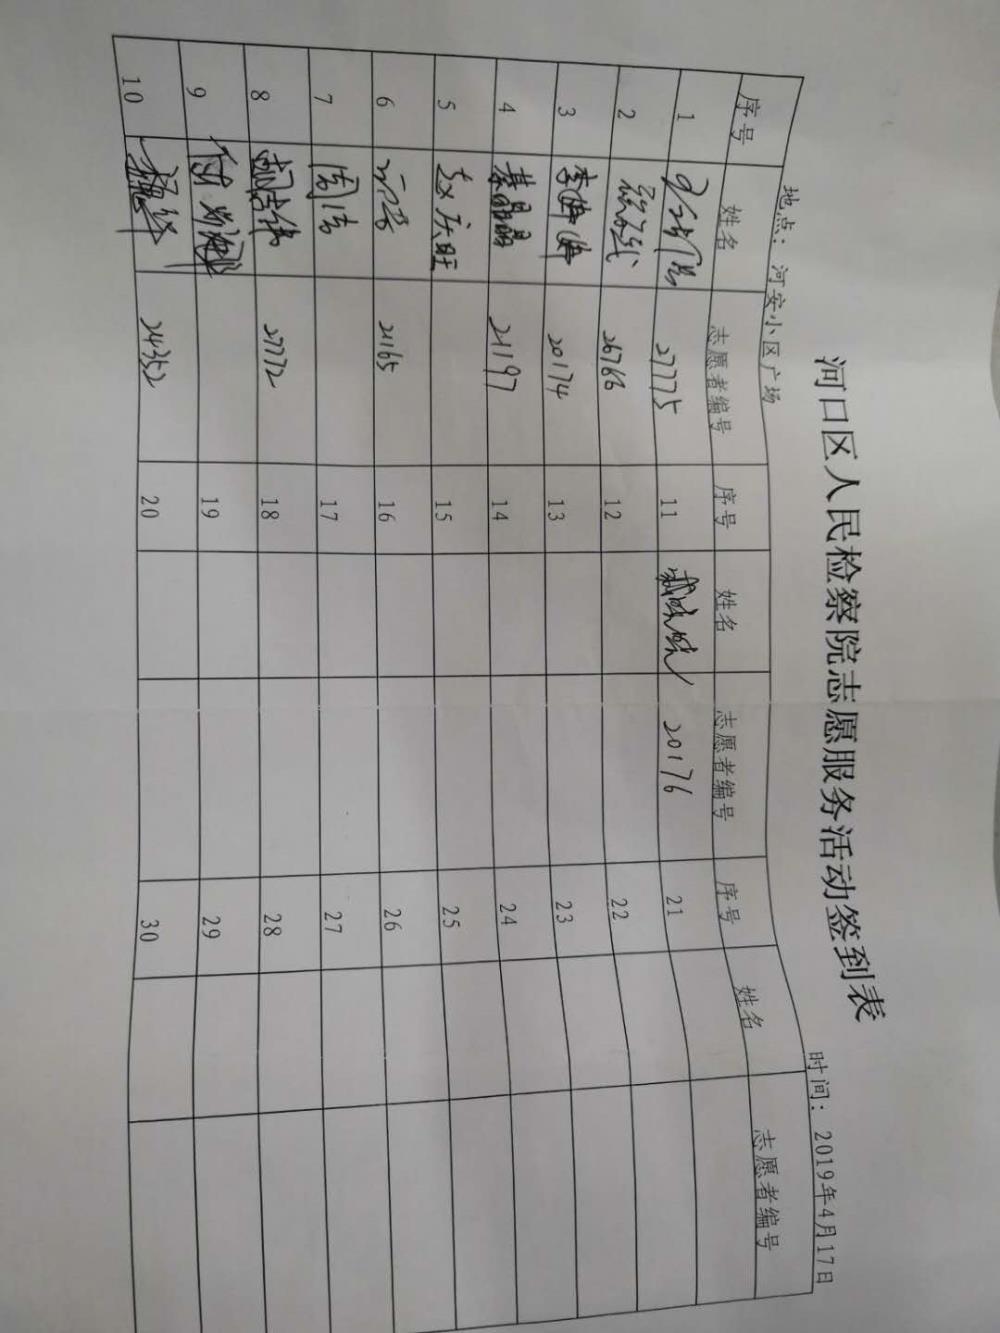 河口区人民检察院志愿服务活动签到表
地点：河安小区广场 时间：2019年4月17日
序号 姓名 志愿者编号 序号 姓名 志愿者编号 序号 姓名 志愿者编号
1 27775 11 20176 21
2 26766 12 22
3 20174 13 23
4 綦晶晶 21197 14 24
5 赵庆旺 15 25
6 21165 16 26
7 周洁 17 27
8 27772 18 28
9 19 29
10 24352 20 30